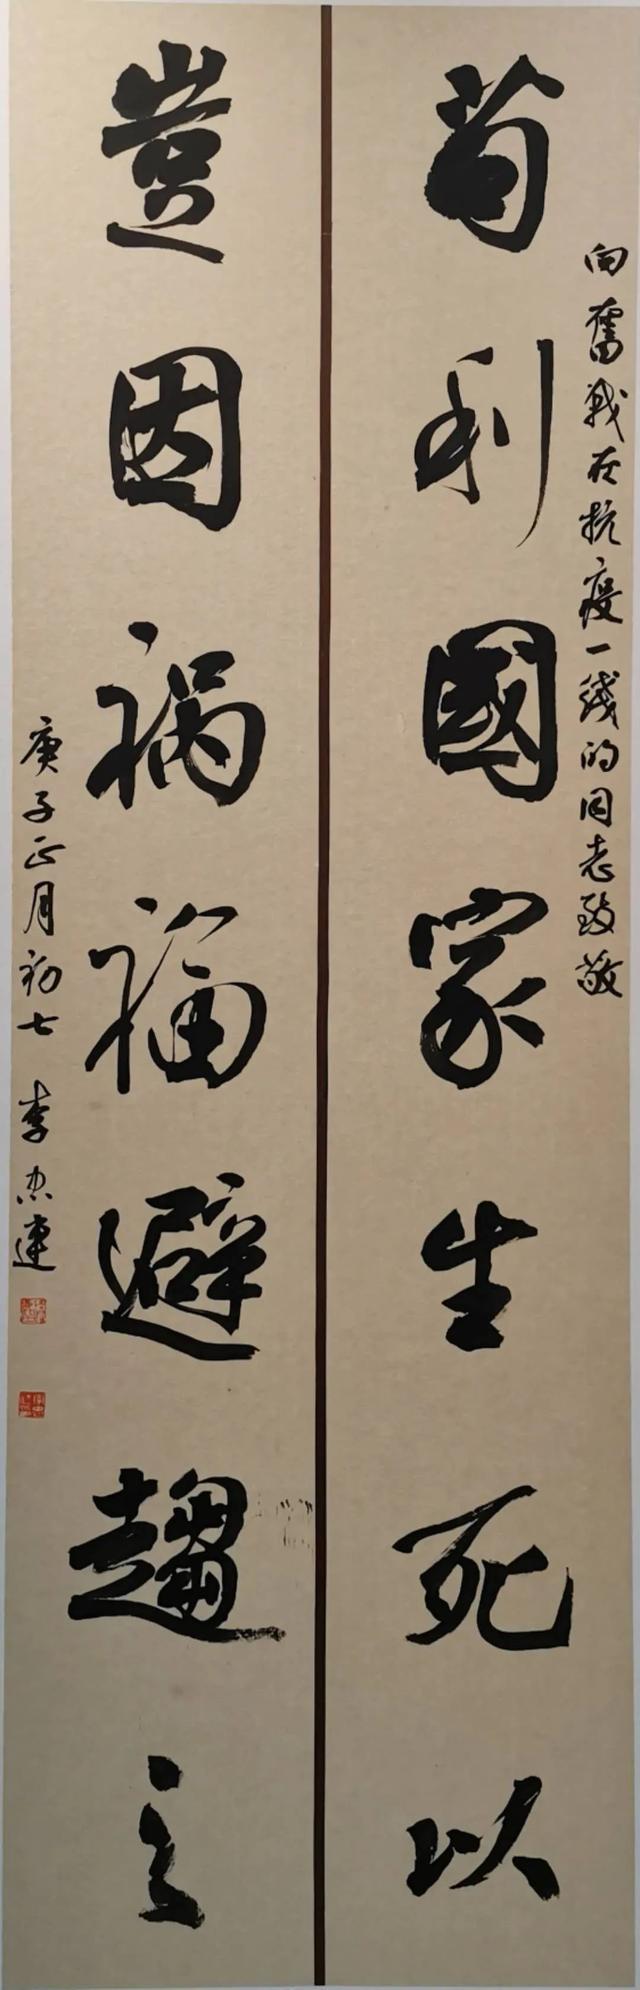 向奮战在抗疫一线的同志致敬
苟利國家生死以
豈因祸福避趨之
庚子正月初七 李忠建